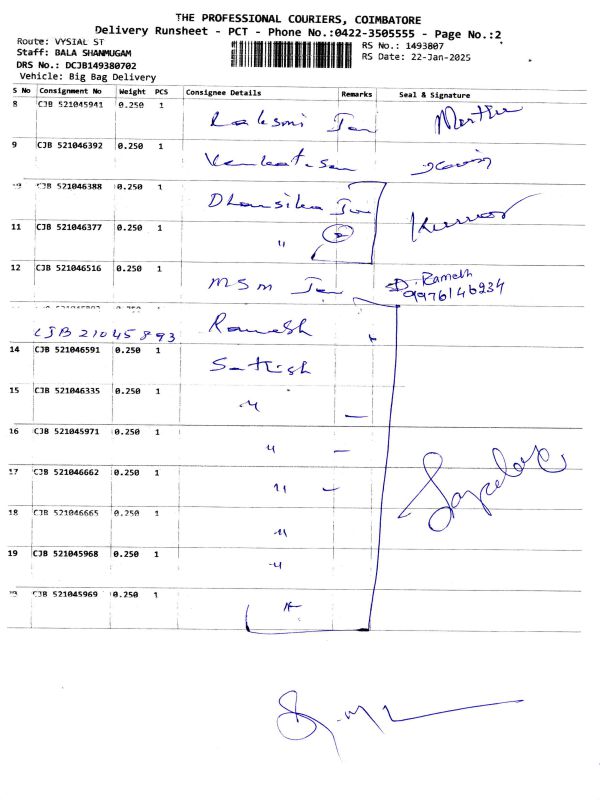 THE PROFESSIONAL COURIERS, COIMBATORE
Delivery Runsheet - PCT - Phone No.:0422-3505555 - Page No.:2
Route: VYSIAL ST
RS No.: 1493807
Staff: BALA SHANMUGAM
RS Date: 22-Jan-2025
DRS No.: DCJB149380702
Vehicle: Big Bag Delivery
S No Consignment No Weight PCS Consignee Details Remarks Seal & Signature
8 CJB 521045941 0.250 1
9 CJB 521046392 0.250 1
10 CJB 521046388 0.250 1 Dhansika
11 CJB 521046377 0.250 1 " 2 Kumar
12 CJB 521046516 0.250 1 MSM D. Ramesh
9976146234
CJB 21045893 Ramesh
14 CJB 521046591 0.250 1 Sathish
15 CJB 521046335 0.250 1 "
16 CJB 521045971 0.250 1 "
17 CJB 521046662 0.250 1 "
18 CJB 521046665 0.250 1 "
19 CJB 521045968 0.250 1 "
20 CJB 521045969 0.250 1 "